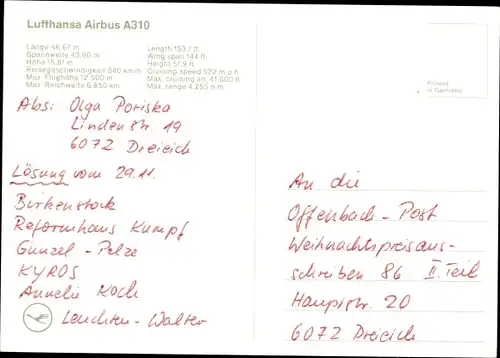 Lufthansa Airbus A310
Länge 46,67 m
Spannweite 43,90 m
Höhe 15,81 m
Reisegeschwindigkeit 840 km/h
Max. Flughöhe 12.500 m
Max. Reichweite 6.850 km
Length 153.1 ft.
Wing span 144 ft.
Height 51.9 ft.
Cruising speed 522 m.p.h.
Max. cruising alt. 41,000 ft
Max. range 4,255 n.m.
Printed
in Germany
Abs: Olga Poriska
Lindenstr. 19
6072 Dreieich
Lösung vom 29.11.
Birkenstock
Reformhaus Kumpf
Günzel - Pelze
KYROS
Annelie Koch
Leuchten - Walter
An die
Offenbach - Post
Weihnachtspreisaus-
schreiben 86 II. Teil
Hauptstr. 20
6072 Dreieich